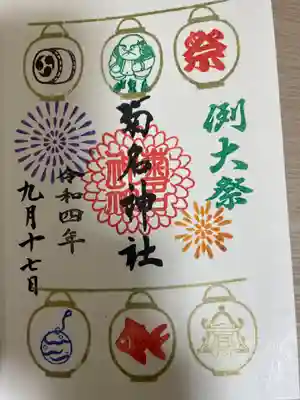 祭
例大祭
菊名神社
令和四年
九月十七日